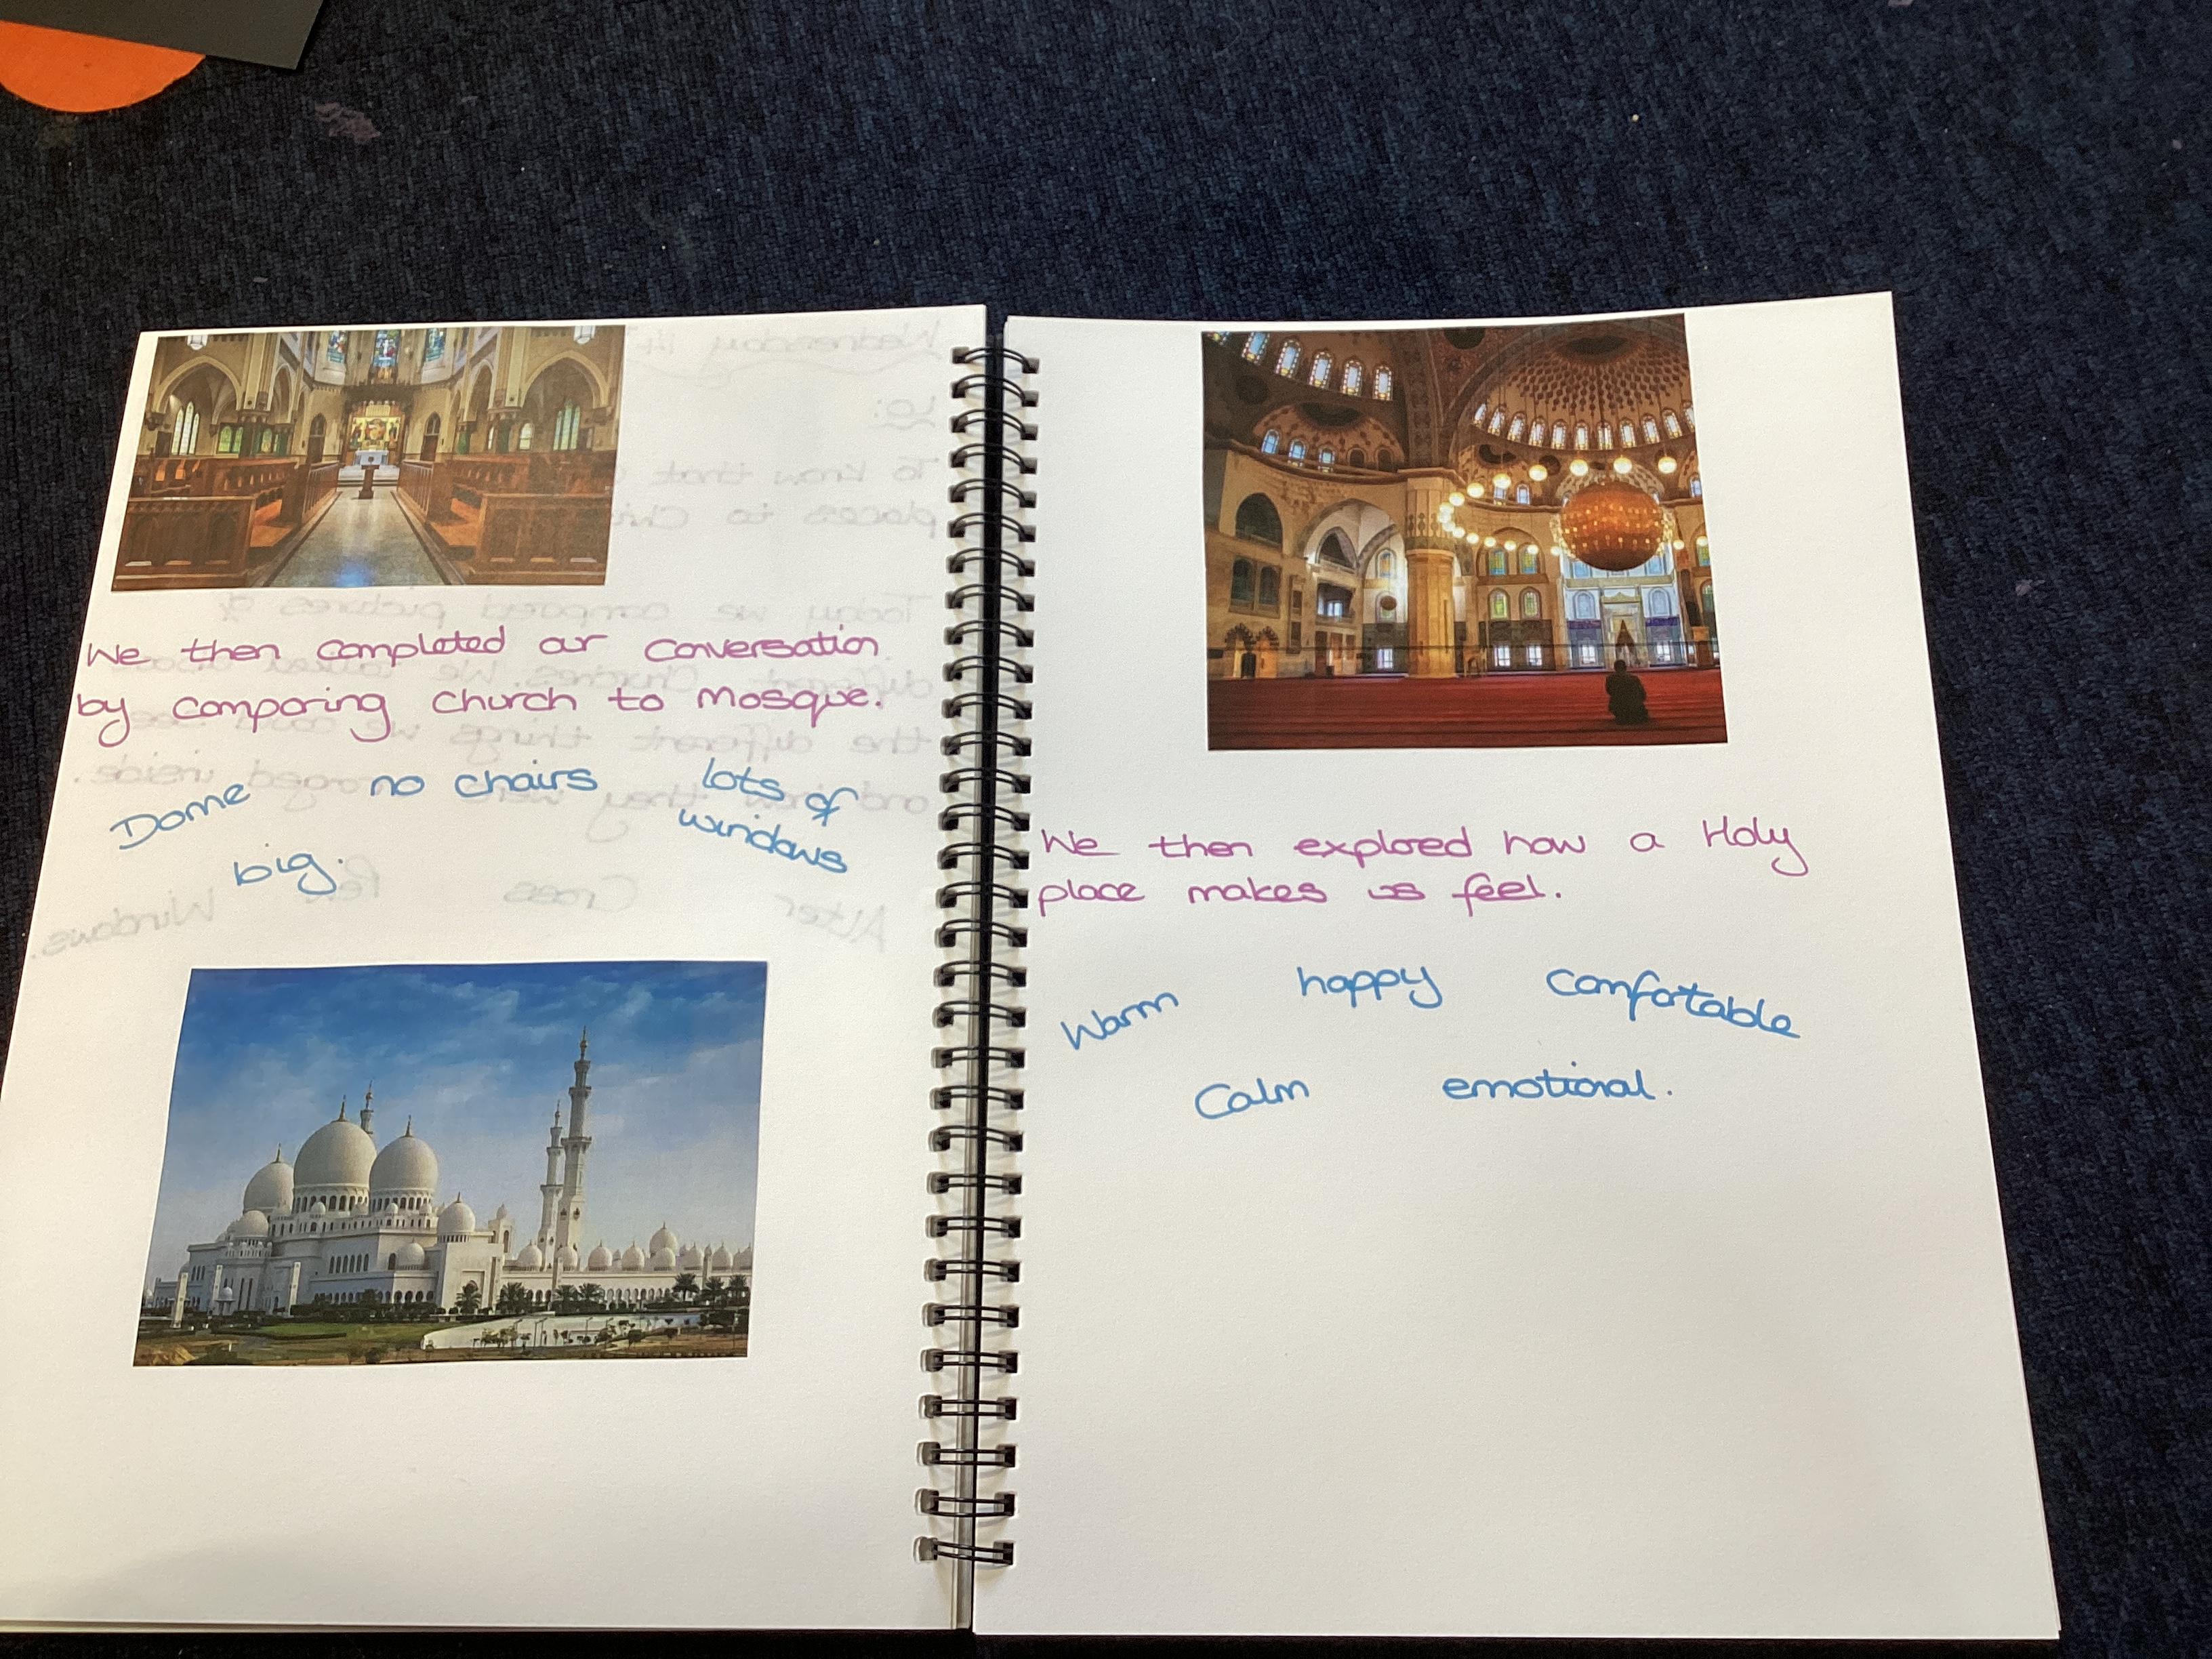 We then completed our conversation
by comparing church to Mosque.
Dome no chairs lots of
windows
big.
We then explored how a Holy
place makes us feel.
Warm happy comfortable
Calm emotional.